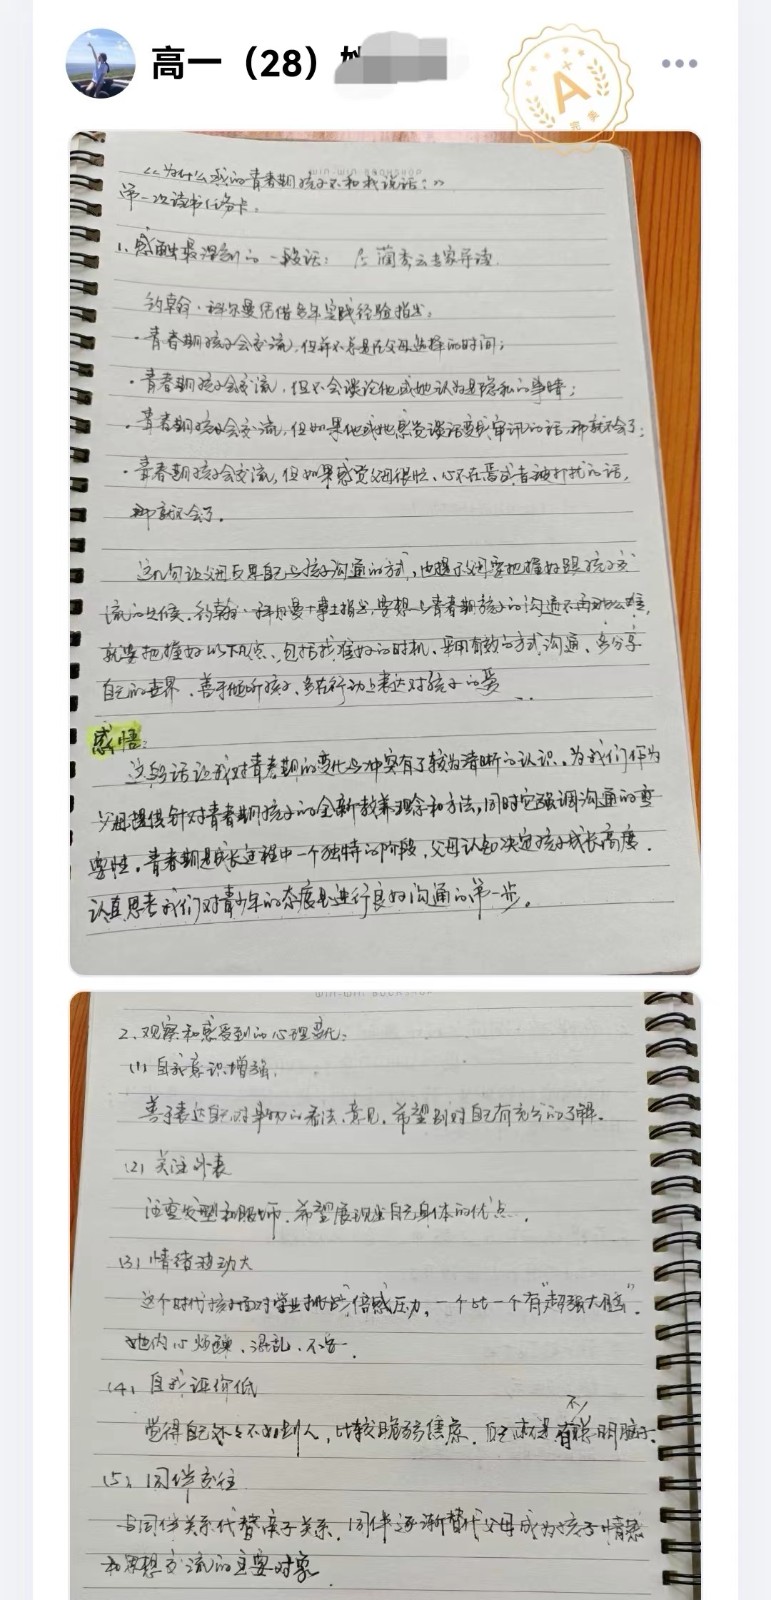 高一（28）
A+
完美
WIN-WIN BOOKSHOP
《为什么我的青春期孩子不和我说话？》
第一次读书任务卡.
1. 感触最深刻的一段话： 兰秀云专家导读.
约翰·科尔曼凭借多年实践经验指出：
·青春期孩子会交流，但并不总是在父母选择的时间；
·青春期孩子会交流，但不会谈论他或她认为是隐私的事情；
·青春期孩子会交流，但如果他或她感觉谈话变成审讯的话，那就不会了；
·青春期孩子会交流，但如果感觉父母很忙、心不在焉或者被打扰的话，
那就不会了。
这几句让父母反思自己与孩子沟通的方式，也提示父母要把握好跟孩子交
流的火候。约翰·科尔曼博士指出，要想与青春期孩子的沟通不再那么难，
就要把握好以下几点、包括找准好的时机、采用有效的方式沟通、多分享
自己的世界、善于倾听孩子、多在行动上表达对孩子的爱
感悟：
这段话让我对青春期的变化与冲突有了较为清晰的认识。为我们作为
父母提供针对青春期孩子的全新教养理念和方法，同时它强调沟通的重
要性。青春期是成长过程中一个独特的阶段，父母认知决定孩子成长高度.
认真思考我们对青少年的态度是进行良好沟通的第一步。
WIN-WIN BOOKSHOP
2、观察和感受到的心理变化：
（1）自我意识增强.
善于表达自己对事物的看法、意见。希望别对自己有充分的了解。
（2）关注外表
注重发型和服饰、希望展现出自己身体的优点.
（3）情绪波动大
这个时代孩子面对学业挑战倍感压力，一个比一个有“超强大脑”.
她内心烦躁、混乱、不安.
（4）自我评价低
觉得自己处处不如别人，比较脆弱焦虑.
（5）同伴交往
与同伴关系代替亲子关系. 同伴逐渐替代父母成为孩子情感
和思想交流的主要对象